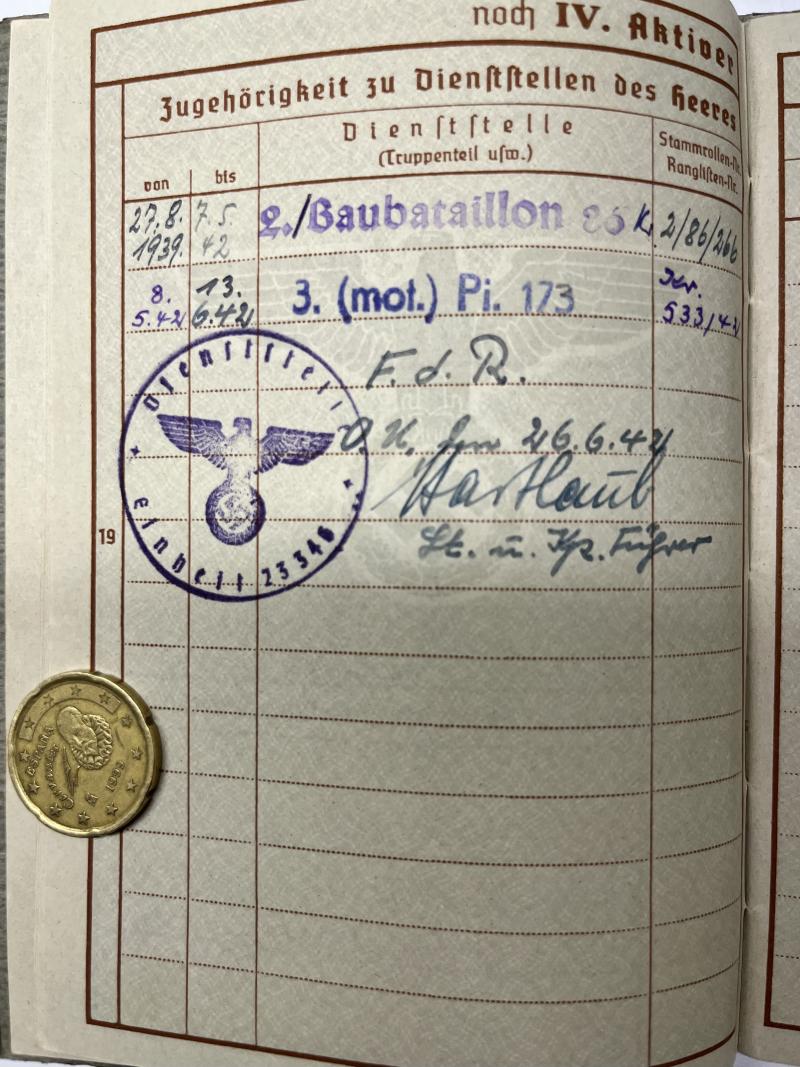 noch IV. Aktiver
Zugehörigkeit zu Dienststellen des Heeres
von
bis
Dienststelle
(Truppenteil usw.)
Stammrollen-Nr.
Ranglisten-Nr.
27.8. 1939.
7.5. 42
2./Baubataillon K. 2/86/266
8. 5.42
13. 6.42
3. (mot.) Pi. 173
533/42
F. d. R.
O. U., 26.6.42
Hartlaub
Lt. u. Kp. Führer
Dienststell
Einheit 23346
19
ESPAÑA
CERVANTES
1999